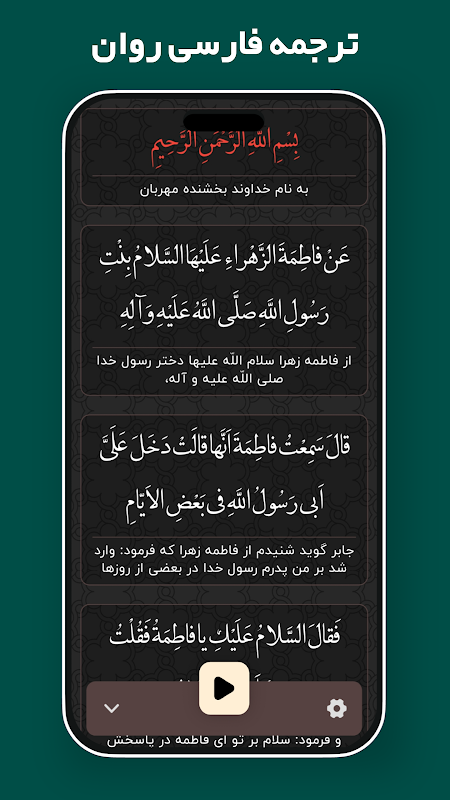 ترجمه فارسی روان
بِسْمِ اللَّهِ الرَّحْمَنِ الرَّحِيمِ
به نام خداوند بخشنده مهربان
عَنْ فاطِمَةَ الزَّهْراءِ عَلَيْهَا السَّلامُ بِنْتِ
رَسُولِ اللَّهِ صَلَّى اللَّهُ عَلَيْهِ وَآلِهِ
از فاطمه زهرا سلام اللّه علیها دختر رسول خدا
صلی اللّه علیه و آله،
قالَ سَمِعْتُ فاطِمَةَ اَنَّها قالَتْ دَخَلَ عَلَىَّ
اَبى رَسُولُ اللَّهِ فى بَعْضِ الاَيّامِ
جابر گوید شنیدم از فاطمه زهرا که فرمود: وارد
شد بر من پدرم رسول خدا در بعضی از روزها
فَقالَ السَّلامُ عَلَيْكِ يا فاطِمَةُ فَقُلْتُ
و فرمود: سلام بر تو ای فاطمه در پاسخش